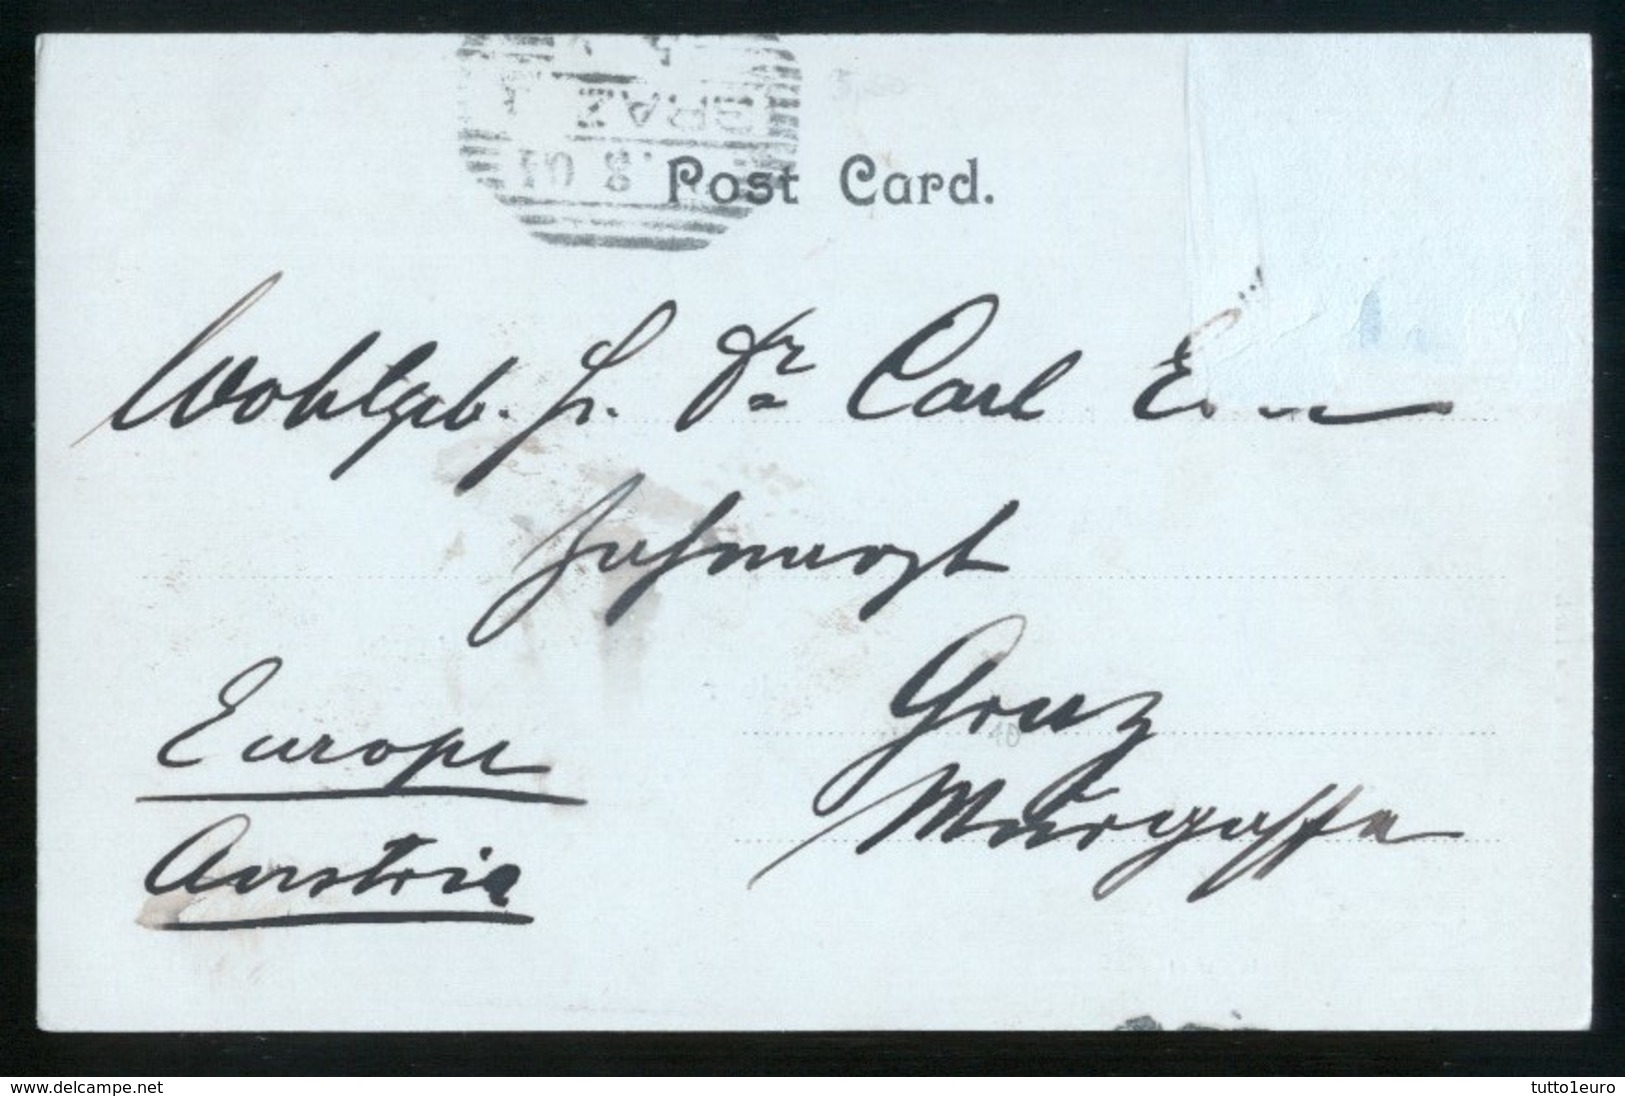 3,00
GRAZ 1
8 01
Post Card.
Wohlgeb. H. Dr. Carl
Zahnarzt
Europe
Graz
10
Austria
Murgasse
www.delcampe.net
tutto1euro